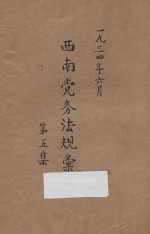 一九三四年六月
西南党务法规彙
第五集